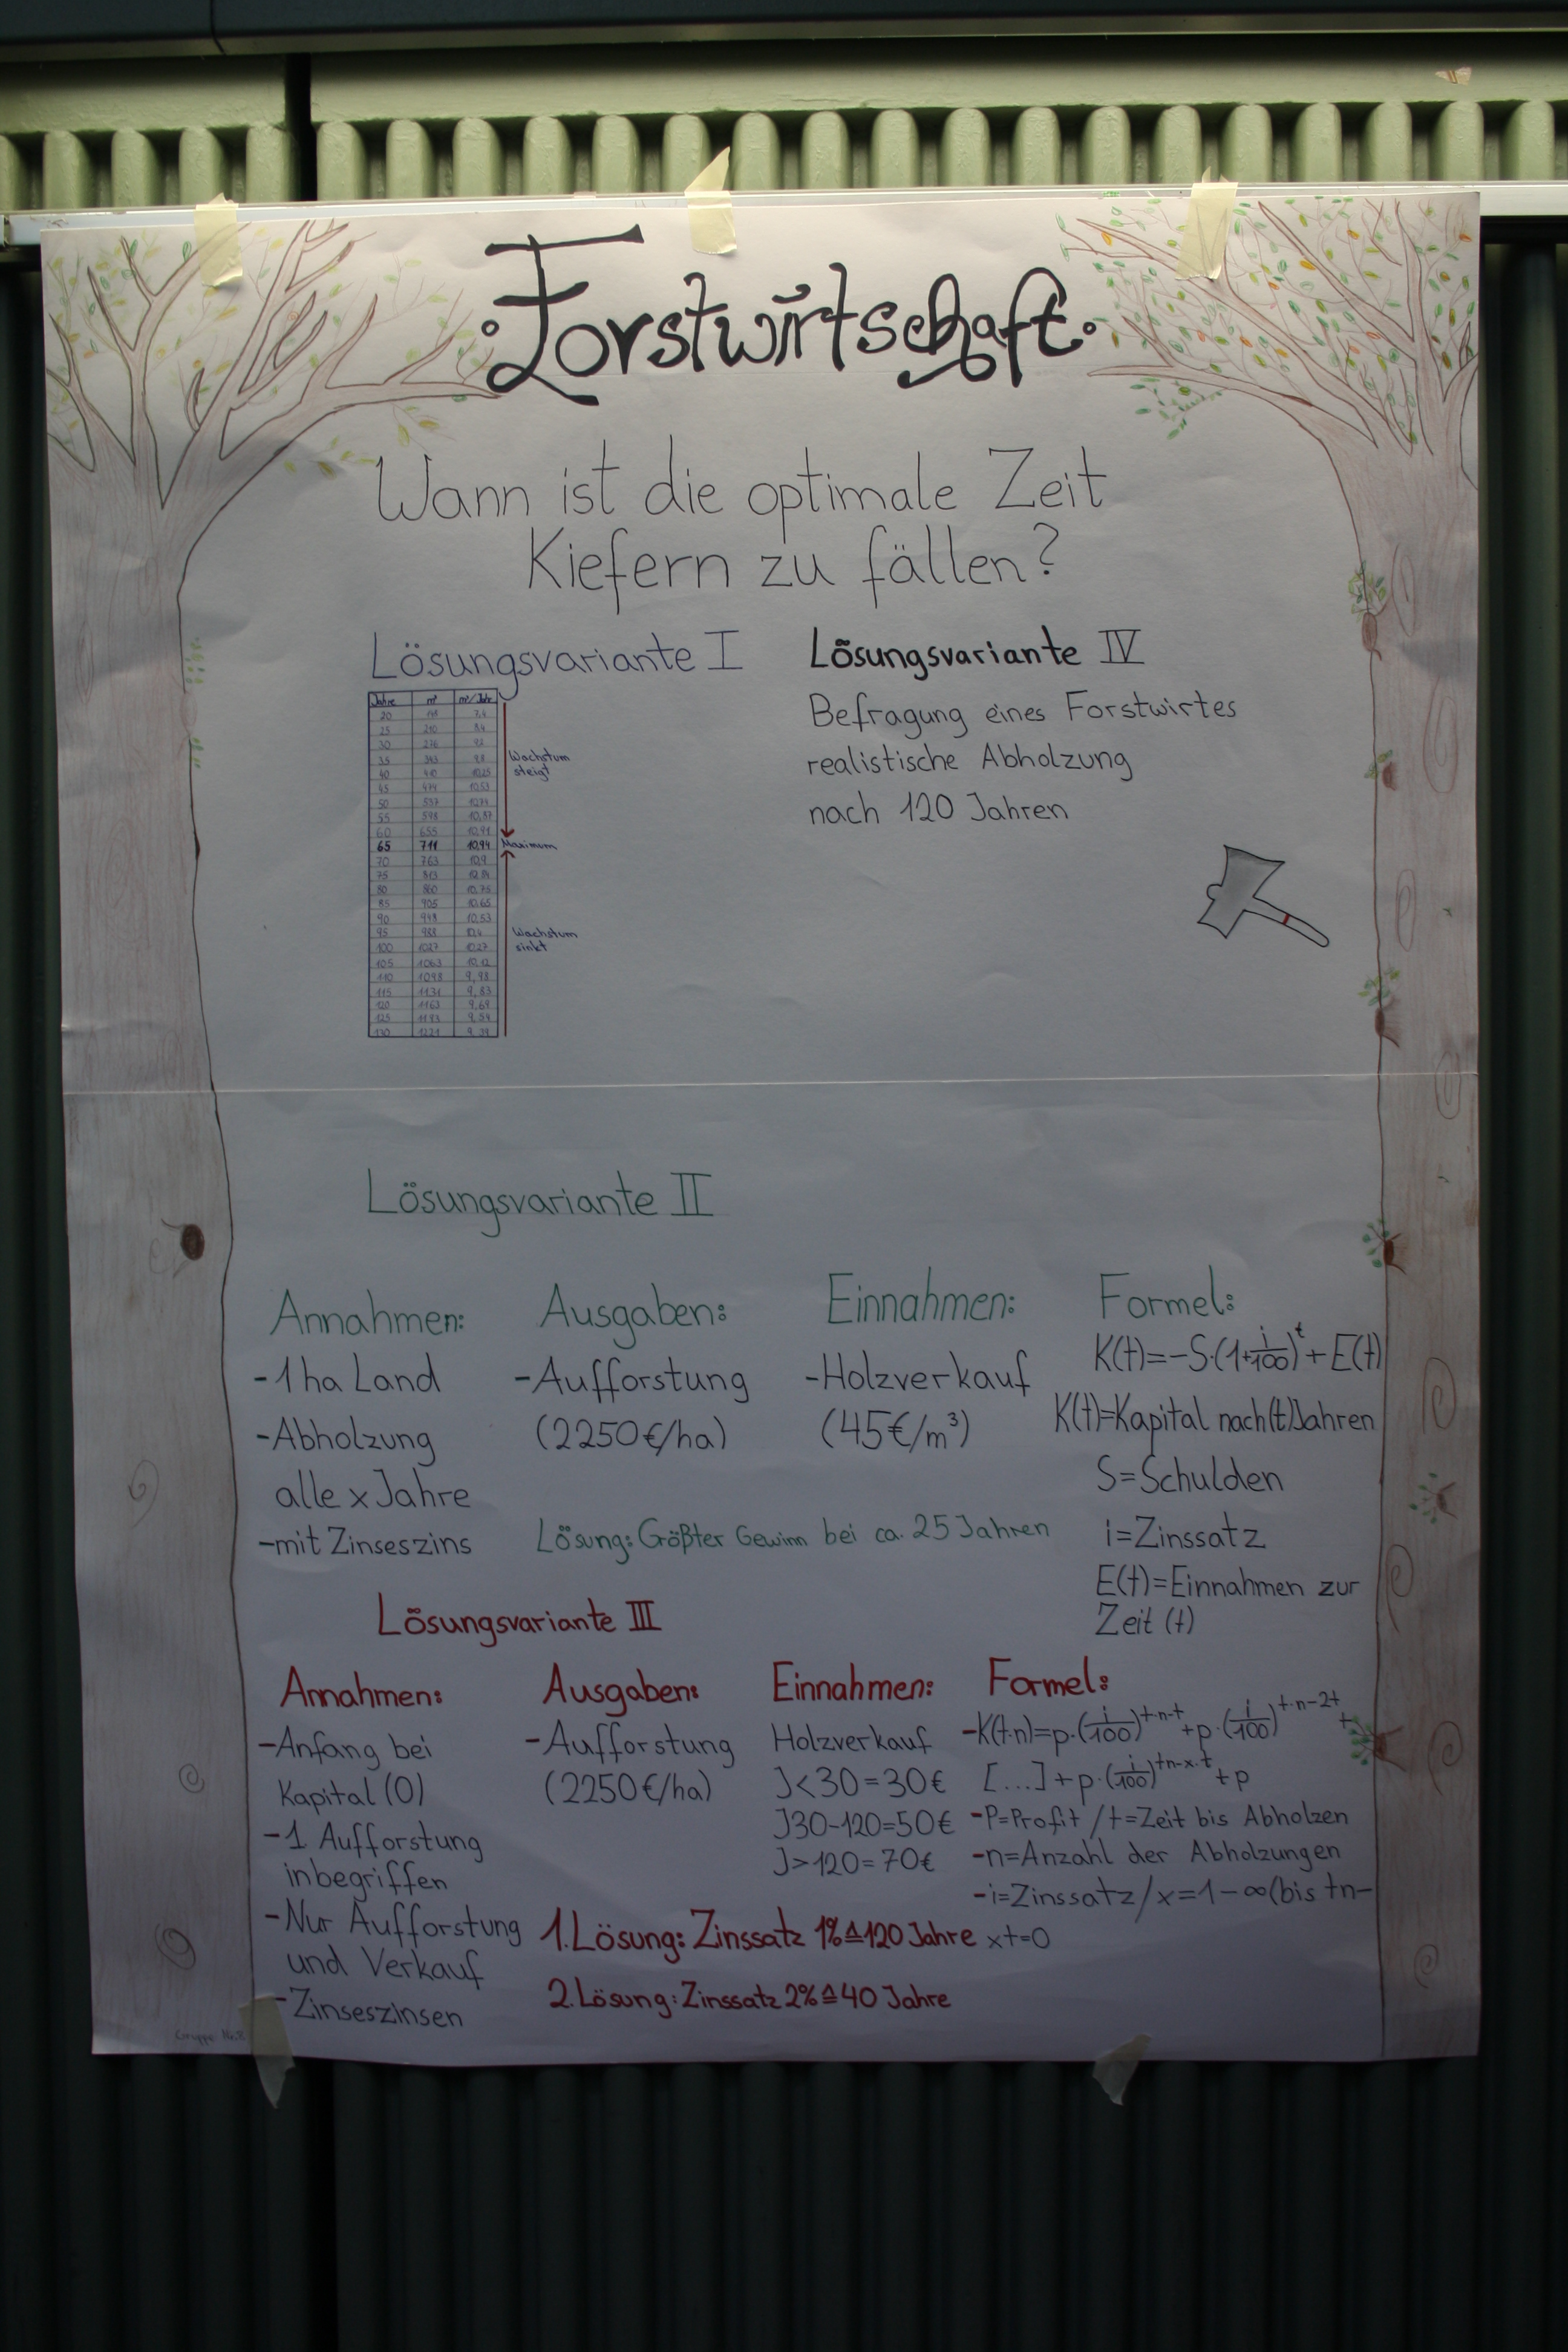 Forstwirtschaft
Wann ist die optimale Zeit
Kiefern zu fällen?
Lösungsvariante I
Jahre m³ m³/Jahr
20 148 7,4
25 210 8,4
30 276 9,2
35 343 9,8
40 410 10,25
45 474 10,53
50 537 10,74
55 598 10,87
60 655 10,91
65 711 10,94
70 763 10,9
75 813 10,84
80 860 10,75
85 905 10,65
90 948 10,53
95 988 10,4
100 1027 10,27
105 1063 10,12
110 1098 9,98
115 1131 9,83
120 1163 9,69
125 1193 9,54
130 1221 9,39
Wachstum
steigt
Maximum
Wachstum
sinkt
Lösungsvariante IV
Befragung eines Forstwirtes
realistische Abholzung
nach 120 Jahren
Lösungsvariante II
Annahmen:
-1 ha Land
-Abholzung
alle x Jahre
-mit Zinseszins
Ausgaben:
-Aufforstung
(2250€/ha)
Einnahmen:
-Holzverkauf
(45€/m³)
Lösung: Größter Gewinn bei ca. 25 Jahren
Formel:
K(t)=-S·(1+i/100)^t+E(t)
K(t)=Kapital nach(t)Jahren
S=Schulden
i=Zinssatz
E(t)=Einnahmen zur
Zeit (t)
Lösungsvariante III
Annahmen:
-Anfang bei
Kapital (0)
-1 Aufforstung
inbegriffen
-Nur Aufforstung
und Verkauf
-Zinseszinsen
Ausgaben:
-Aufforstung
(2250€/ha)
Einnahmen:
Holzverkauf
J<30=30€
J30-120=50€
J>120=70€
Formel:
-K(t·n)=p·(i/100)^t·n-t+p·(i/100)^t·n-2t+
[...]+p·(i/100)^tn-x·t+p
-P=Profit /t=Zeit bis Abholzen
-n=Anzahl der Abholzungen
-i=Zinssatz/x=1-∞(bis tn-
xt=0
1.Lösung: Zinssatz 1%≙120 Jahre
2.Lösung: Zinssatz 2%≙40 Jahre
Gruppe Nr.